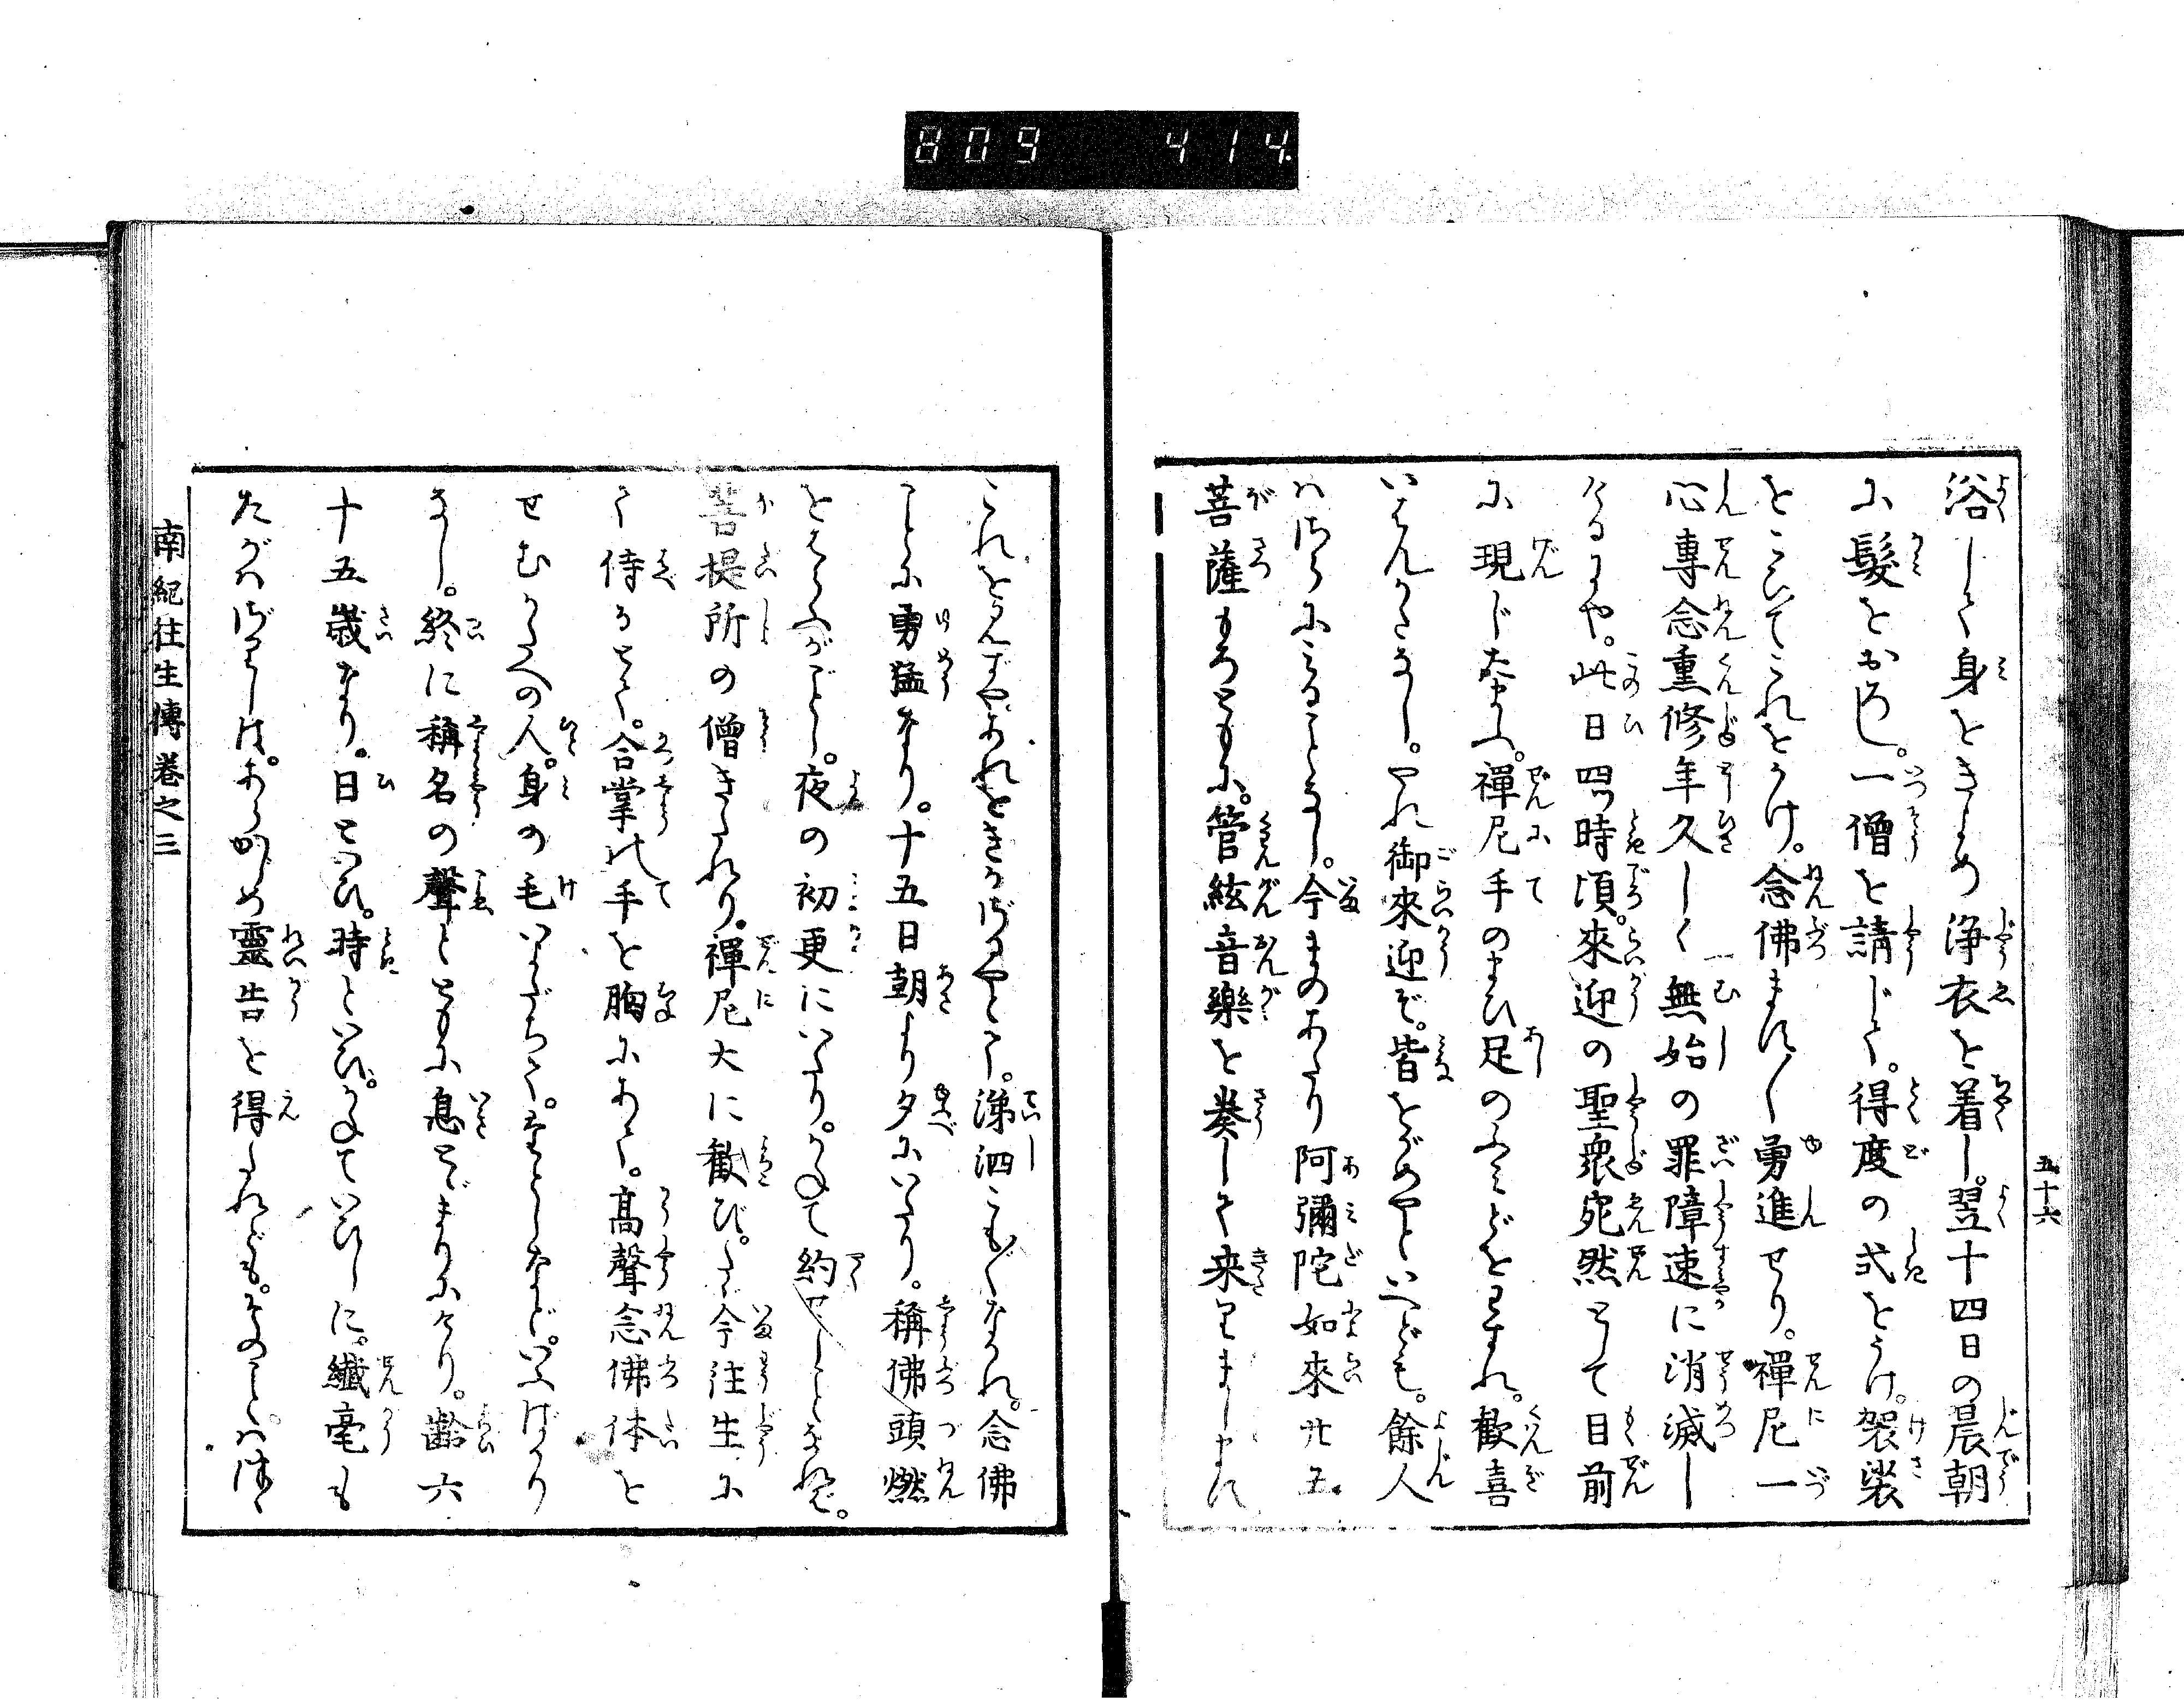 809 414
五十六
浴して身をきよめ浄衣を着し。翌十四日の晨朝
に髪をおろし。一僧を請じて。得度の式をうけ。袈裟
をこひてこれをうけ。念佛ます〳〵勇進せり。禪尼一
心專念熏修年久しく無始の罪障速に消滅し
けるにや。此日四時頃。來迎の聖衆宛然として目前
に現じたまふ。禪尼手のまひ足のふみどをわすれ。歡喜
いはんかたなし。やれ御來迎ぞ。皆をがめやといへども。餘人
はさらにみることなし。今まのあたり阿彌陀如來廿五
菩薩もろともに。管絃音樂を奏して来りまします
これをみずや。あれをきかずやとて。涕泗こも〴〵ながれ。念佛
ことに勇猛なり。十五日朝より夕にいたり。稱佛頭燃
をはらふがごとし。夜の初更にいたり。かねて約せしことなれば。
菩提所の僧きたれり。禪尼大に歡び。たゞ今往生に
て侍るとて。合掌の手を胸にあて。高聲念佛体を
せむかたへの人。身の毛いよだちて。たうとしなど。いふばかり
なし。終に稱名の聲とともに息とゞまりにけり。齡六
十五歳なり。日といひ。時といひ。かねていひしに。纖毫も
たがはざりしは。あらかじめ靈告を得られども。そのことは
南紀往生傳卷之三